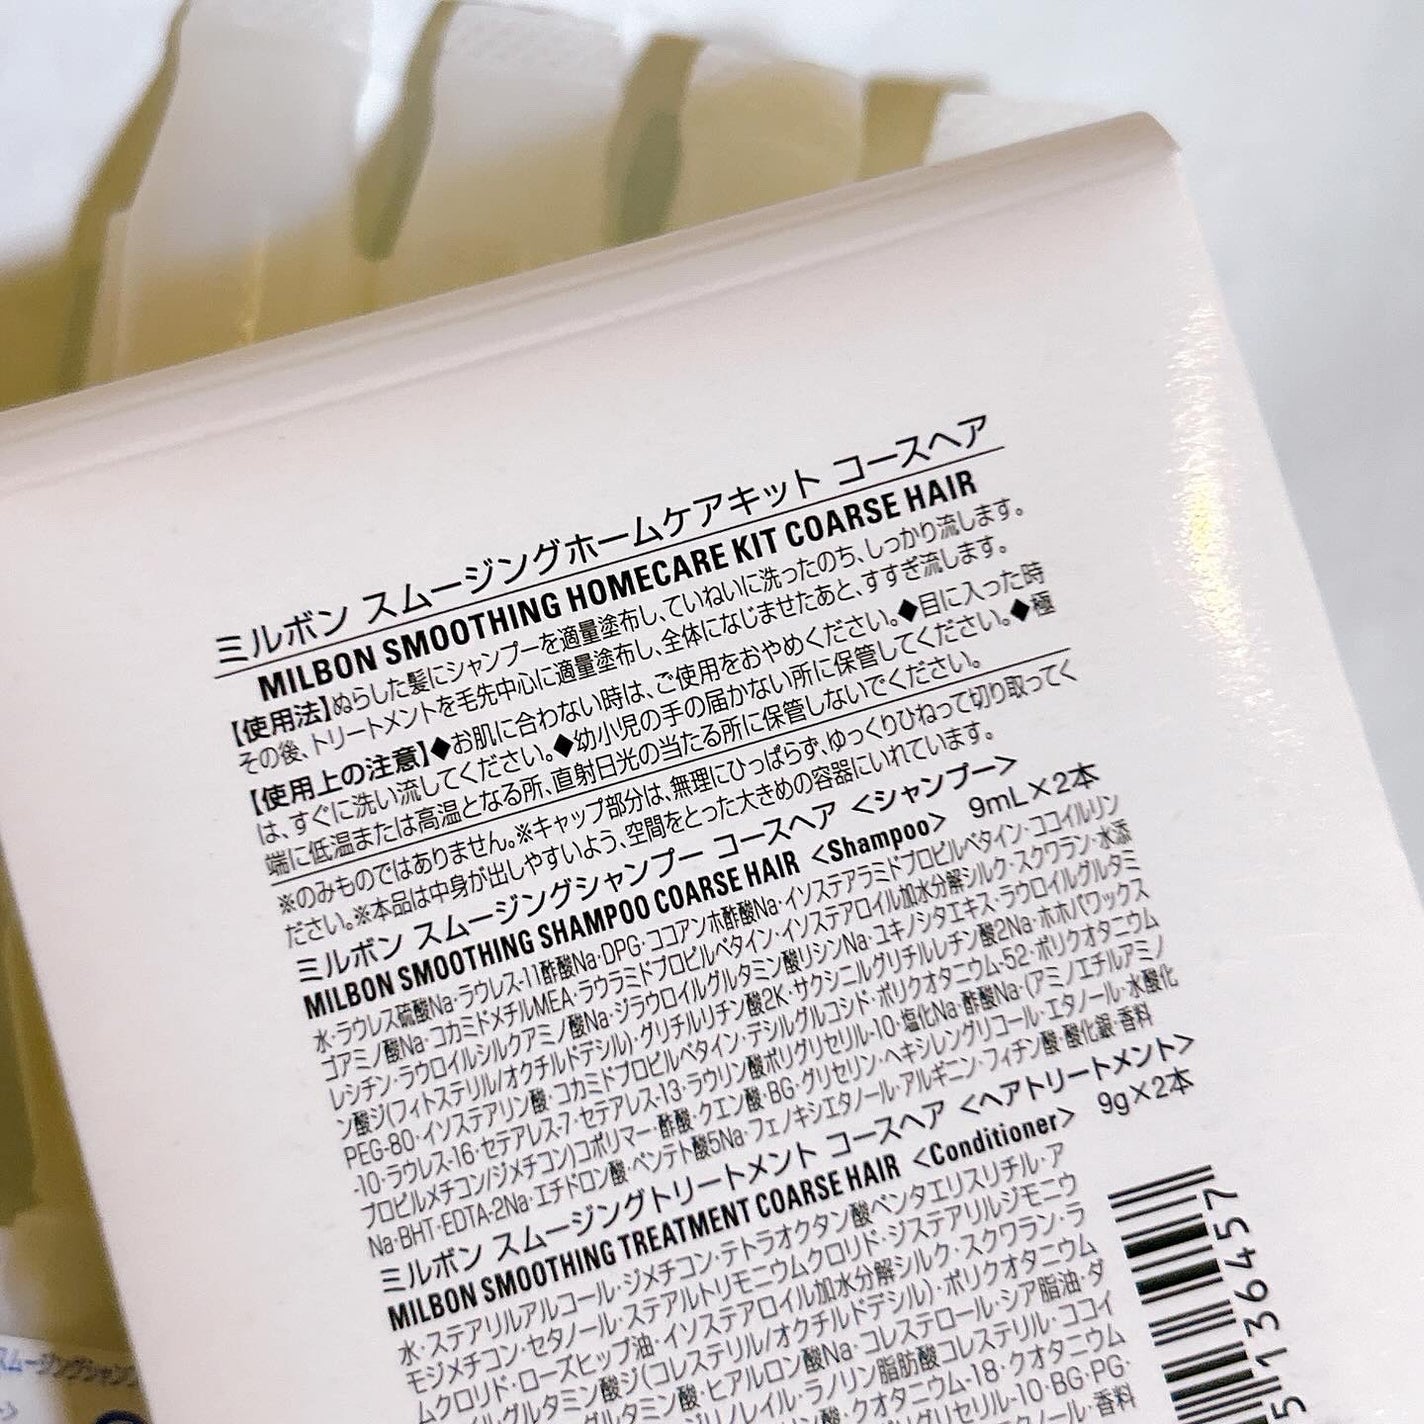 ミルボン スムージングホームケアキット コースヘア
MILBON SMOOTHING HOMECARE KIT COARSE HAIR
【使用法】ぬらした髪にシャンプーを適量塗布し、ていねいに洗ったのち、しっかり流します。
その後、トリートメントを毛先中心に適量塗布し、全体になじませたあと、すすぎ流します。
【使用上の注意】◆お肌に合わない時は、ご使用をおやめください。◆目に入った時
は、すぐに洗い流してください。◆幼小児の手の届かない所に保管してください。◆極
端に低温または高温となる所、直射日光の当たる所に保管しないでください。
※のみものではありません。※キャップ部分は、無理にひっぱらず、ゆっくりひねって切り取ってく
ださい。※本品は中身が出しやすいよう、空間をとった大きめの容器にいれています。
ミルボン スムージングシャンプー コースヘア <シャンプー>
MILBON SMOOTHING SHAMPOO COARSE HAIR <Shampoo> 9mL×2本
水・ラウレス硫酸Na・ラウレス-11酢酸Na・DPG・ココアンホ酢酸Na・イソステアラミドプロピルベタイン・ココイルリン
ゴアミノ酸Na・コカミドメチルMEA・ラウラミドプロピルベタイン・イソステアロイル加水分解シルク・スクワラン・水添
レシチン・ラウロイルシルクアミノ酸Na・ジラウロイルグルタミン酸リシンNa・ユキノシタエキス・ラウロイルグルタミ
ン酸ジ(フィトステリル/オクチルドデシル)・グリチルリチン酸2K・サクシニルグリチルレチン酸2Na・ホホバワックス
PEG-80・イソステアリン酸・コカミドプロピルベタイン・デシルグルコシド・ポリクオタニウム-52・ポリクオタニウム
-10・ラウレス-16・セテアレス-7・セテアレス-13・ラウリン酸ポリグリセリル-10・塩化Na・酢酸Na・(アミノエチルアミノ
プロピルメチコン/ジメチコン)コポリマー・酢酸・クエン酸・BG・グリセリン・ヘキシレングリコール・エタノール・水酸化
Na・BHT・EDTA-2Na・エチドロン酸・ペンテト酸5Na・フェノキシエタノール・アルギニン・フィチン酸・酸化銀・香料
ミルボン スムージングトリートメント コースヘア <ヘアトリートメント>
MILBON SMOOTHING TREATMENT COARSE HAIR <Conditioner> 9g×2本
水・ステアリルアルコール・ジメチコン・テトラオクタン酸ペンタエリスリチル・ア
モジメチコン・セタノール・ステアルトリモニウムクロリド・ジステアリルジモニウ
ムクロリド・ローズヒップ油・イソステアロイル加水分解シルク・スクワラン・ラ
イルグルタミン酸ジ(コレステリル/オクチルドデシル)・ポリクオタニウム
グルタミン酸・ヒアルロン酸Na・コレステロール・シア脂油・ダ
リノレイル・ラノリン脂肪酸コレステリル・ココイ
酸・クオタニウム-18・クオタニウム
グリセリル-10・BG・PG・
ノール・香料
5 136457